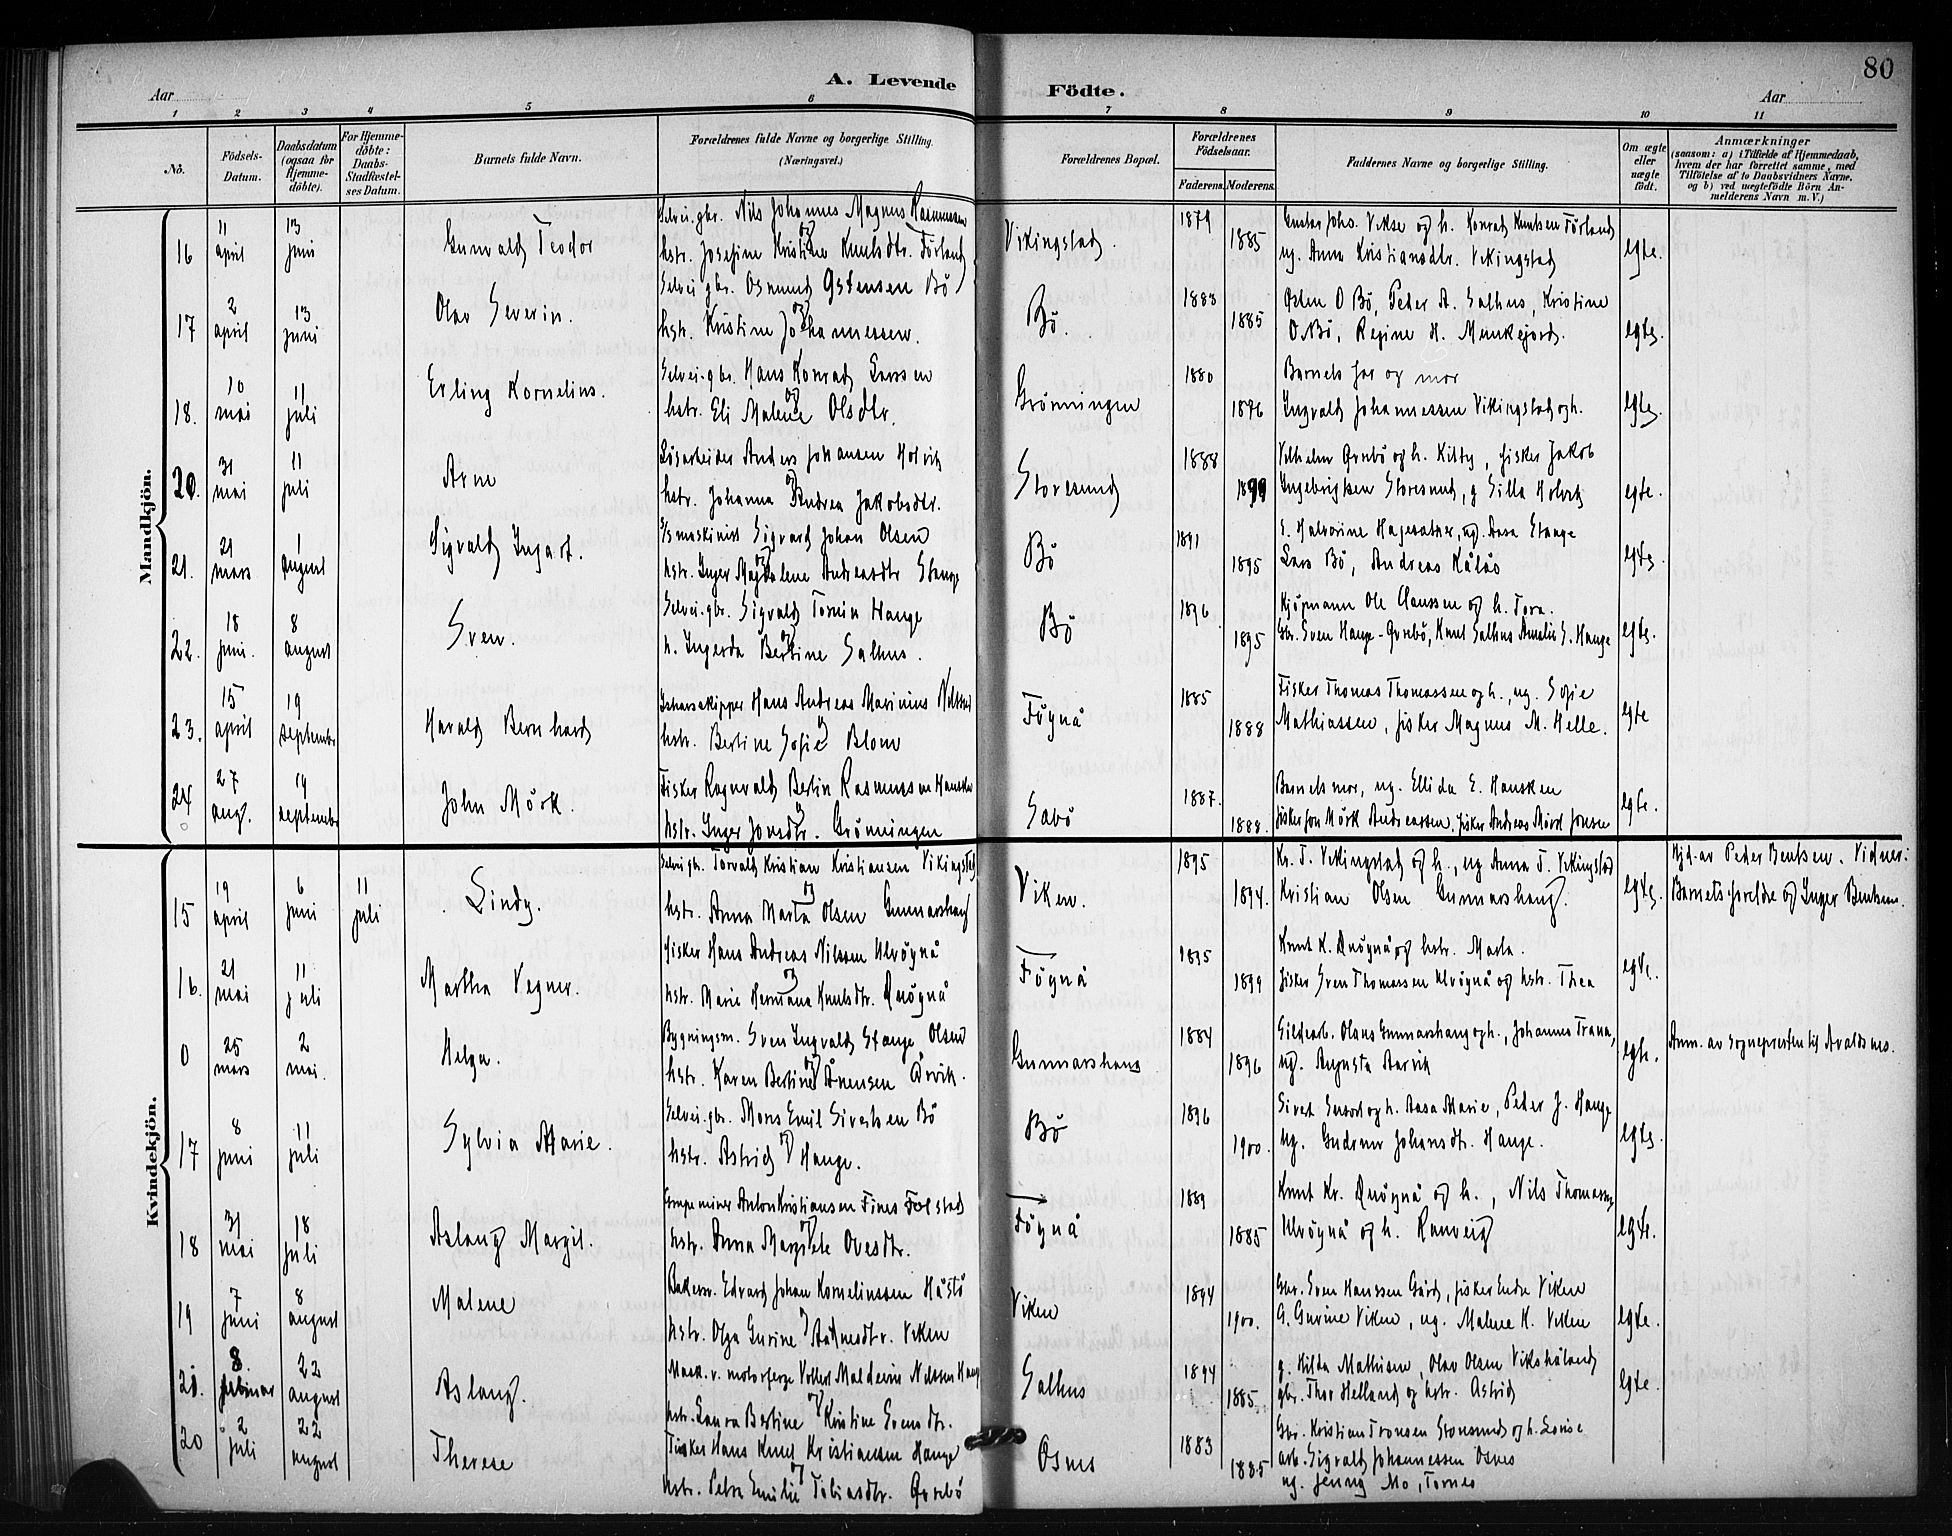 80
A. Levende Födte.
Aar
Aar
1 2 3 4 5 6 7 8 9 10 11
No.
Födsels-Datum.
Daabsdatum (ogsaa for Hjemme-döbte).
For Hjemme-döbte: Daabs-Stadfæstel-ses Datum.
Barnets fulde Navn.
Forældrenes fulde Navne og borgerlige Stilling. (Næringsvei.)
Forældrenes Bopæl.
Forældrenes Födselsaar.
Faderens. Moderens.
Faddernes Navne og borgerlige Stilling.
Om ægte eller uægte födt.
Anmærkninger
(saasom: a) i Tilfælde af Hjemmedaab, hvem der har forrettet samme, med Tilföielse af to Daabsvidners Navne, og b) ved uægtefödte Börn An-melderens Navn m. V.)
Mandkjön.
16 11 april 13 juni Gunvald Teodor
Selvei.gbr. Nils Johannes Magnus Rasmussen
og
hstr. Josefine Kristine Knutsdtr. Förland
Vikingstad. 1879 1885
Gustav Johs. Vikse og h. Konrad Knutsen Förland
ug. Anna Kristiansdtr. Vikingstad
egte.
17 2 april 13 juni Olav Severin.
Selvei gbr. Osmund Östensen Bö
og
hstr. Kristine Johannessen.
Bö. 1883 1885
Östen O Bö, Peder A. Salhus, Kristine
O. Bö, Regine H. Munkejord.
egte.
18. 10 mai 11 juli Erling Kornelius.
Selvei.gbr. Hans Konrad Larsen
og
hstr. Eli Malene Olsdtr.
Grönningen 1880 1896
Barnets far og mor
Ingvald Johannessen Vikingstad og h.
egte.
20. 31 mai 11 juli Arne
Lösarbeider Anders Johansen Holvik
og
hstr. Johanna Andrea Jakobsdtr.
Storesund 1888 1899
Vilhelm Qvrebö og h. Kitty, fisker Jakob
Ingebrigtsen Storesund, g Silla Holvik
egte.
21. 21 mars 1 august Sigvald Ingart.
D/S maskinist Sigvard Johan Olsen
og
hstr. Inger Magdalene Andreasdtr Stange
Bö 1891 1895
E. Halvorine Hagesæter, ug. Aasa Stange
Lars Bö, Andreas Kålås
egte.
22. 18 juni. 8 august Sven.
Selvei.gbr. Sigvald Tomin Hauge
og
h. Ingerda Bertine Salhus.
Bö 1896 1895
Kjöpmann Ole Claussen og h. Tora.
Gbr. Sven Hauge-Qvrebö, Knut Salhus Amalie S. Hauge
egte.
23. 15 april 19 september Harald Bernhard
Hans Andreas Marinius
og
hstr. Bertine Sofie Blom
Föynå 1885 1888
Fisker Thomas Thomassen og h., ug. Sofie
Mathiassen, fisker Magnus M. Helle.
egte
24 27 aug. 19 september John Mörk.
Fisker Ragnvald Bertin Rasmussen Hansken
og
hstr. Inger Jonsdtr. Grönningen
Sabö 1887. 1888.
Barnets mor, ug. Ellida E. Hansken
fisker Jon Mörk Andreassen, fisker Andreas Mörk Jonsen
egte.
Kvindekjön.
15 19 april 6 juni 11 juli Lindy.
Selvei gb. Torvald Kristian Kristiansen Vikingstad
og
hstr. Anna Marta Olsen Gunnarshaug
Viken. 1895 1894.
Kr. T. Vikingstad og h., ug Anna T. Vikingstad
Kristian Olsen Gunnarshaug.
egte.
Hjd. av Peder Bentsen. Vidner:
Barnets foreldre og Inger Bentsen.
16. 21 mai 11 juli Martha Vegner.
fisker Hans Andreas Nilssen Ulvöynå
og
hstr. Marie Hermana Knutsdtr.
Föynå 1895 1899
Knut K. og hstr. Marta.
fisker Sven Thomassen Ulvöynå og hstr. Thea
egte.
0 25 mars 2 mai. Helga.
Bygningsm. Sven Ingvald Stange Olsen
og
hstr. Karen Bertine Ånensen Arvik.
Gunnarshaug 1884 1896
Sildearb. Olaus Gunnarshaug og h., Johannes Trana,
ug. Augusta Aarvik
egte.
Anm. av sognepresten til Avaldsnes.
17 8 juni 11 juli Sylvia Marie.
Selvei.gbr. Mons Emil Sivertsen Bö
og
hstr. Astrid Hauge.
Bö 1896 1900.
Sivert og h. Aasa Marie, Peder J. Hauge
ug. Gudrun Johansdtr. Hauge.
egte.
18 31 mai 18 juli Aslaug Margit.
Grupeminer Anton Kristiansen Fines Folstad
og
hstr. Anna Margrete Ovesdtr.
Föynå 1889 1885
Knut Kr. og h., Nils Thomassen
Ulvöynå og h. Ranveig
egte.
19 7 juni 8 august Malene
Bakersv. Edvard Johan Kornelinssen Håstö
og
hstr. Olga Gurine Viken
Viken 1894 1900.
Gbr. Sven Hanssen Gård, fisker Endre Viken
G. Gurine Viken, ug. Malene K. Viken
egte.
21. 8. februar 22 august Aslaug.
Mask. v. motorferge Vollert Maldevin Nilssen Haug
og
hstr. Laura Bertine Kristine Svensdtr.
Salhus 1894 1885
g. Hilda Mathisen, Olav Olsen Vikshåland
gbr. Thor Helland og hstr. Astrid
egte.
20 2 juli 22 august Therese
Fisker Hans Knut Kristiansen Hauge
og
hstr. Petra Emilie Tobiasdtr. Qvrebö
Osnes 1883 1885
Gbr. Kristian Tronsen Storesund og h. Lovise
arb. Sigvald Johannessen Osnes
ug. Jenny Mo, Tornes